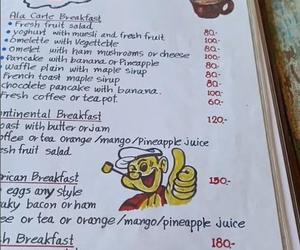 Ala Carte Breakfast
• Fresh fruit salad 80.-
• yoghurt with muesli and fresh fruit 100.-
• Omelette with Vegetteble 100.-
• Omelet with ham mushrooms or cheese 100.-
• Pancake with banana or Pineapple 80.-
• Waffle plain with maple sirup 80.-
French toast maple sirup 80.-
chocolete pancake with banana. 100.-
Fresh coffee or tea pot. 60.-
ntinental Breakfast 120.-
oast with butter or jam
offee or tea orange/mango/Pineapple juice
esh fruit salad
rican Breakfast 150.-
eggs any style
aky bacon or ham
ee or tea or orange/mango/pineapple juice
sh Breakfast 180.-